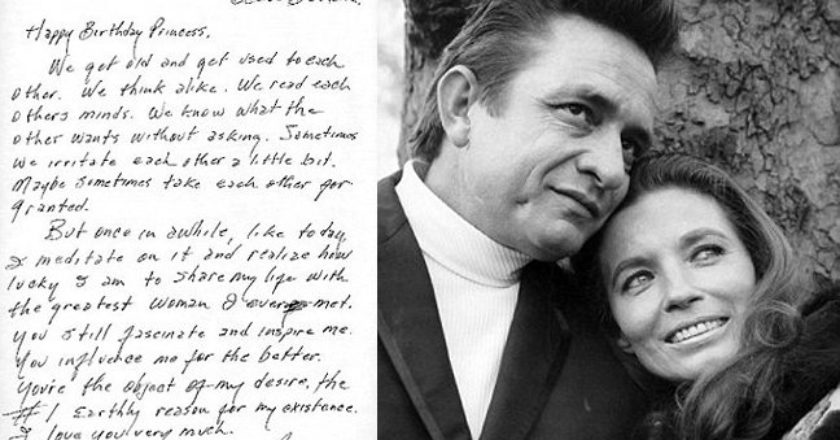 Happy Birthday Princess,
We get old and get used to each
other. We think alike. We read each
others minds. We know what the
other wants without asking. Sometimes
we irritate each other a little bit.
Maybe sometimes take each other for
granted.
But once in awhile, like today,
I meditate on it and realize how
lucky I am to share my life with
the greatest woman I ever met.
You still fascinate and inspire me.
You influence me for the better.
You're the object of my desire, the
#1 Earthly reason for my existence.
I love you very much.